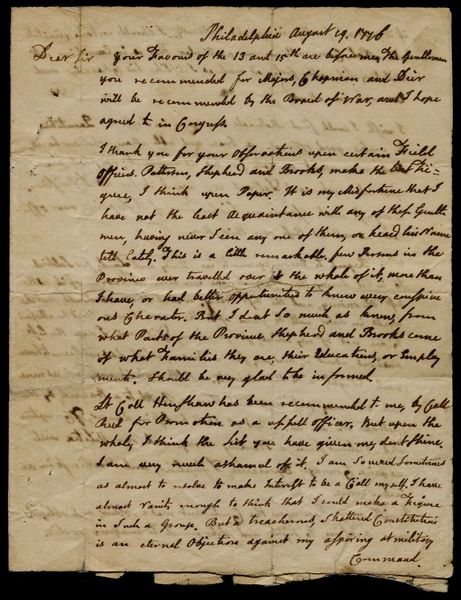 Philadelphia August 19. 1776
Dear sir your Favours of the 13 and 15th are before me. The Gentlemen
you recommended for Majors, Chapman and Dier
will be recommended by the Board of War, and I hope
agreed to in Congress.
I thank you for your Observations upon certain Field
Officers. Patterson, Shephard and Brooks, make the best fi-
gure, I think upon Paper. It is my Misfortune that I
have not the least Acquaintance with any of those Gentle-
men, having never seen any one of them, or heard his Name
till lately. This is a little remarkable, few Persons in the
Province ever travelled over the whole of it, more than
I have, or had better opportunities to know every conspicu-
ous Character. But I dont so much as know, from
what Parts of the Province Shephard and Brooks come
of what Families they are, their Educations, or Employ
ments. Should be very glad to be informed.
Lt Coll Henshaw has been recommended to me, by Coll
Reed for Promotion as a usefull officer. But upon the
whole, I think the List you have given me, dont shine.
I am very much ashamed of it, I am so vexed sometimes
as almost to resolve to make Interest to be a Coll myself. I have
almost vanity enough to think that I could make a Figure
in such a Groupe. But a treacherous, shattered Constitution
is an eternal Objection against my aspiring at military
Command.